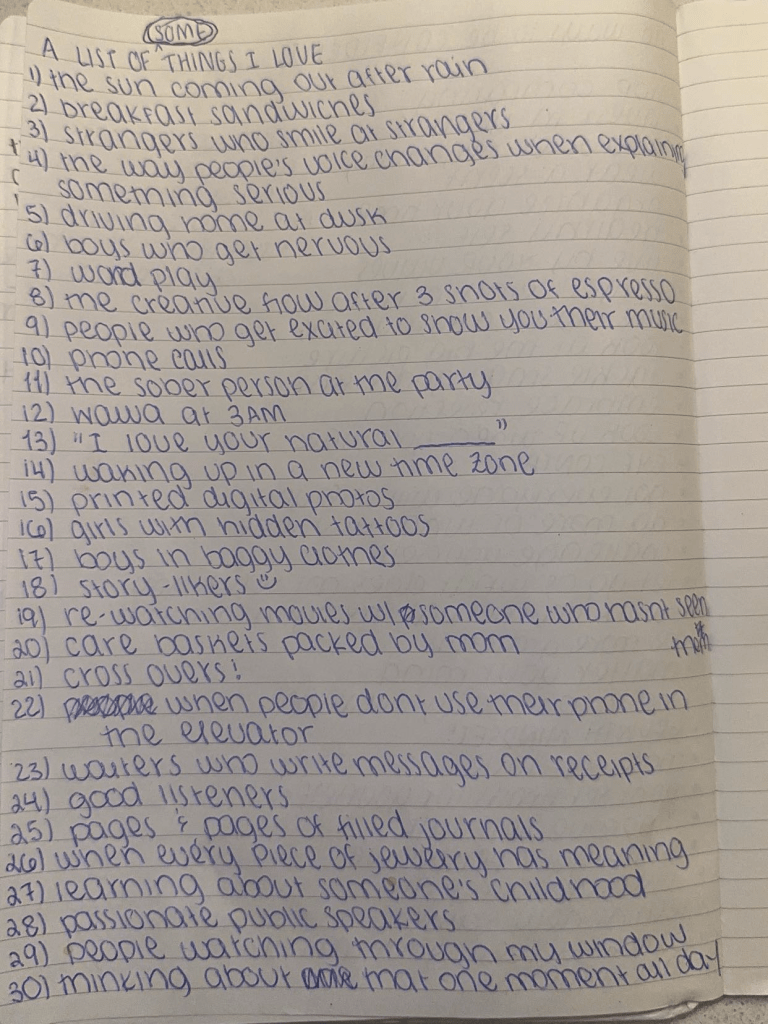 (SOME)
A LIST OF ^ THINGS I LOVE
1) the sun coming out after rain
2) breakfast sandwiches
3) strangers who smile at strangers
4) the way people's voice changes when explaining
something serious
5) driving home at dusk
6) boys who get nervous
7) word play
8) the creative flow after 3 shots of espresso
9) people who get excited to show you their music
10) phone calls
11) the sober person at the party
12) wawa at 3AM
13) "I love your natural ______"
14) waking up in a new time zone
15) printed digital photos
16) girls with hidden tattoos
17) boys in baggy clothes
18) story-likers ☺
19) re-watching movies w/ someone who hasnt seen
20) care baskets packed by mom
21) cross overs!
22) when people dont use their phone in
the elevator
23) waiters who write messages on receipts
24) good listeners
25) pages & pages of filled journals
26) when every piece of jewelry has meaning
27) learning about someone's childhood
28) passionate public speakers
29) people watching through my window
30) thinking about that one moment all day